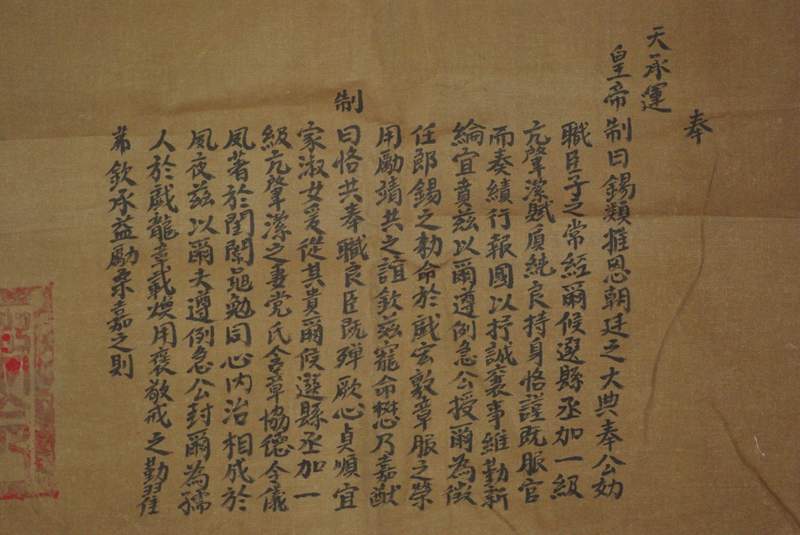 奉
天承運
皇帝制曰錫類推恩朝廷之大典奉公効
職臣子之常經爾候選縣丞加一級
亢肇潔賦質純良持身恪謹既服官
而奏績行報國以抒誠襄事維勤新
綸宜賁茲以爾遵例急公授爾為徵
任郎錫之勅命於戲宏敷章服之榮
用勵靖共之誼欽茲寵命懋乃嘉猷
制
曰恪共奉職良臣既殫厥心貞順宜
家淑女爰從其貴爾候選縣丞加一
級亢肇潔之妻党氏含章協德令儀
夙著於閨闈黽勉同心內治相成於
夙夜茲以爾夫遵例急公封爾為孺
人於戲龍章載煥用褒敬戒之勤翟
茀欽承益勵柔嘉之則